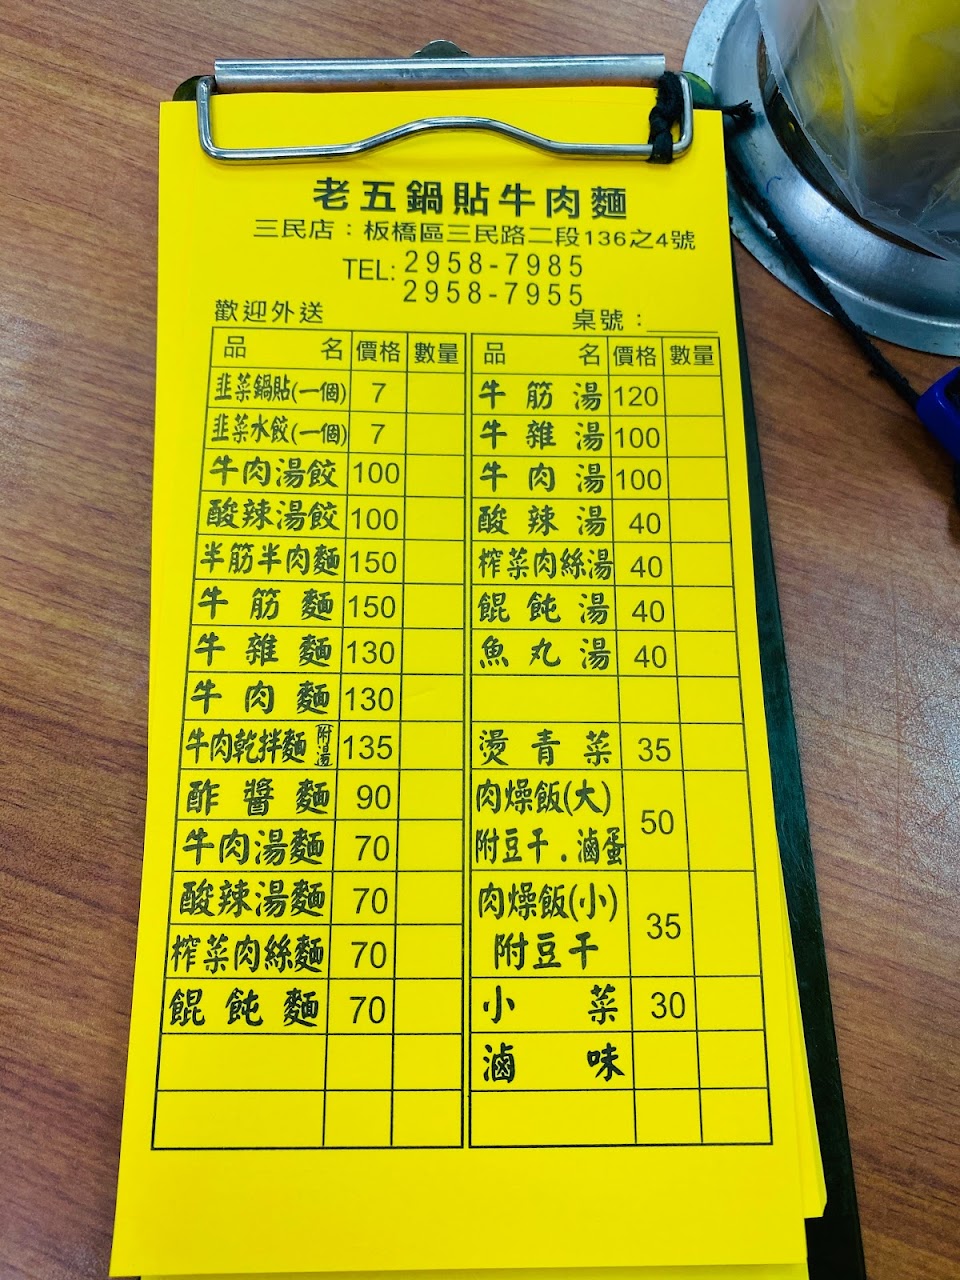 老五鍋貼牛肉麵
三民店：板橋區三民路二段136之4號
TEL: 2958-7985
2958-7955
歡迎外送
桌號：
品名 價格 數量
韭菜鍋貼(一個) 7
韭菜水餃(一個) 7
牛肉湯餃 100
酸辣湯餃 100
半筋半肉麵 150
牛筋麵 150
牛雜麵 130
牛肉麵 130
牛肉乾拌麵 附湯 135
酢醬麵 90
牛肉湯麵 70
酸辣湯麵 70
榨菜肉絲麵 70
餛飩麵 70
品名 價格 數量
牛筋湯 120
牛雜湯 100
牛肉湯 100
酸辣湯 40
榨菜肉絲湯 40
餛飩湯 40
魚丸湯 40
燙青菜 35
肉燥飯(大)
附豆干.滷蛋 50
肉燥飯(小)
附豆干 35
小菜 30
滷味